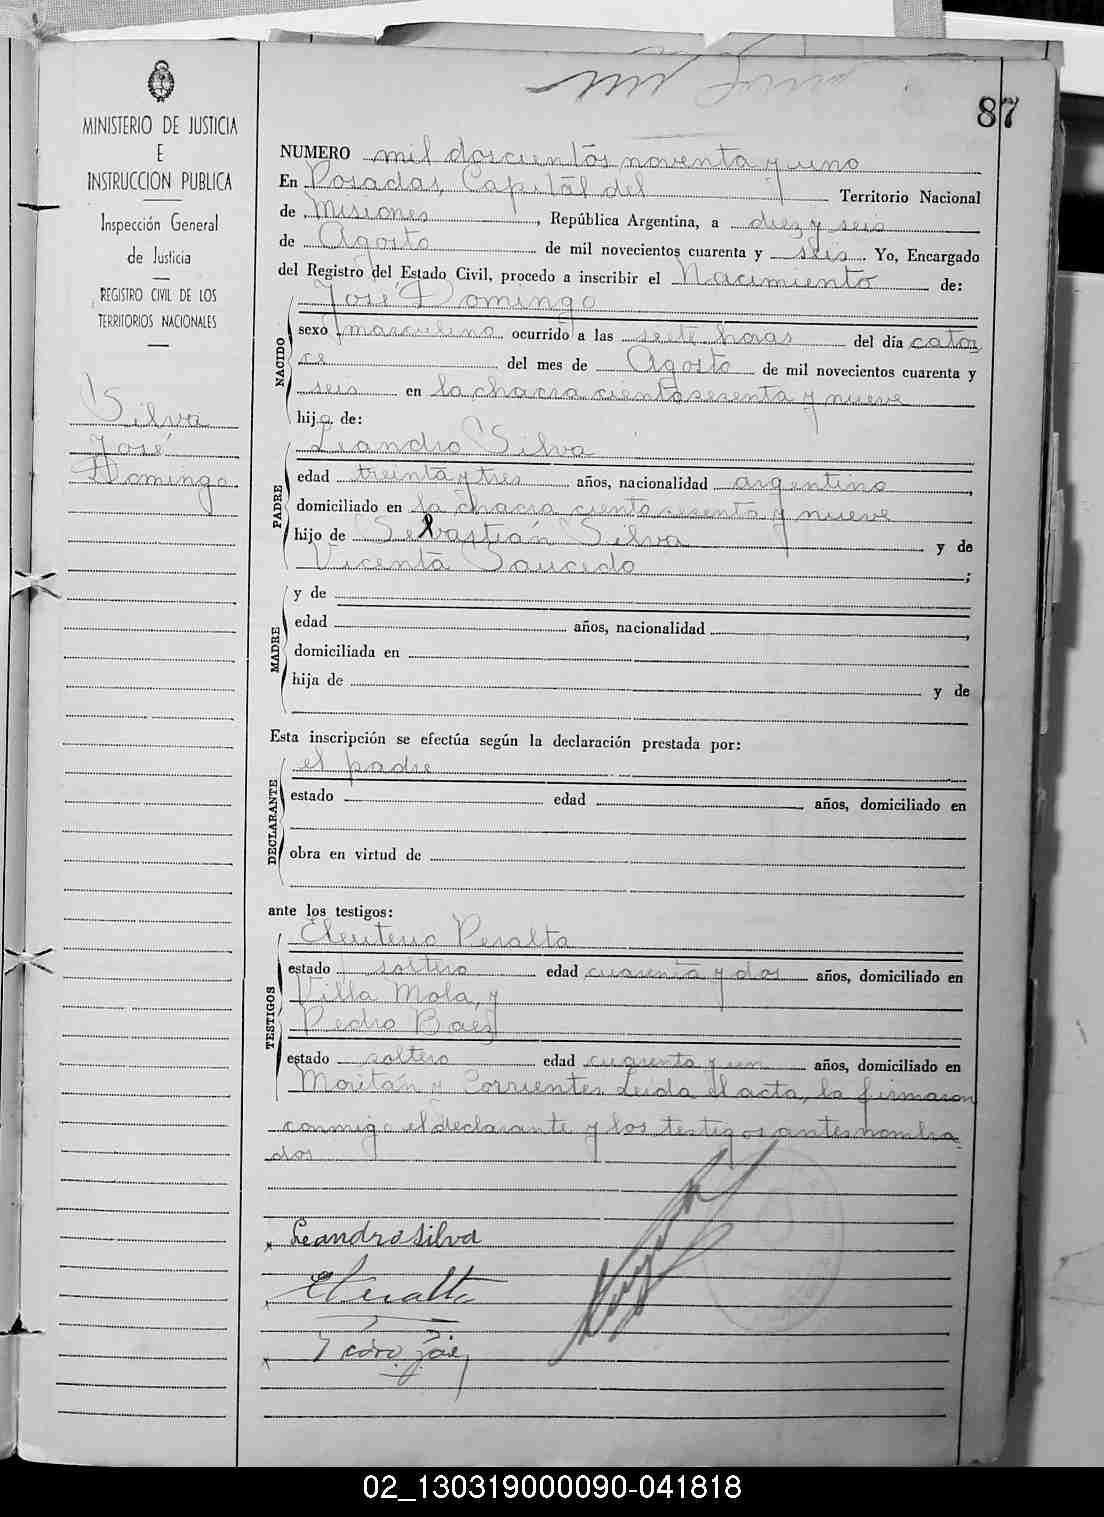 87
MINISTERIO DE JUSTICIA
E
INSTRUCCION PUBLICA
Inspección General
de Justicia
REGISTRO CIVIL DE LOS
TERRITORIOS NACIONALES
Silva
José
Domingo
NUMERO mil doscientos noventa y uno
En Posadas, Capital del Territorio Nacional
de Misiones, República Argentina, a diez y seis
de Agosto de mil novecientos cuarenta y seis. Yo, Encargado
del Registro del Estado Civil, procedo a inscribir el Nacimiento de:
NACIDO
José Domingo
sexo masculino ocurrido a las siete horas del día cator
ce del mes de Agosto de mil novecientos cuarenta y
seis en la chacra ciento sesenta y nueve
hijo de:
PADRE
Leandro Silva
edad treinta y tres años, nacionalidad argentino,
domiciliado en la chacra ciento sesenta y nueve
hijo de Sebastián Silva y de
Vicenta Saucedo;
MADRE
y de
edad años, nacionalidad,
domiciliada en
hija de y de
Esta inscripción se efectúa según la declaración prestada por:
DECLARANTE
el padre
estado edad años, domiciliado en
obra en virtud de
ante los testigos:
TESTIGOS
Eleuterio Peralta
estado soltero edad cuarenta y dos años, domiciliado en
Villa Mola, y
Pedro Baez
estado soltero edad cuarenta y un años, domiciliado en
Moritán y Corrientes. Leida el acta, la firmaron
conmigo el declarante y los testigos antes nombra
dos
Leandro Silva
02_130319000090-041818